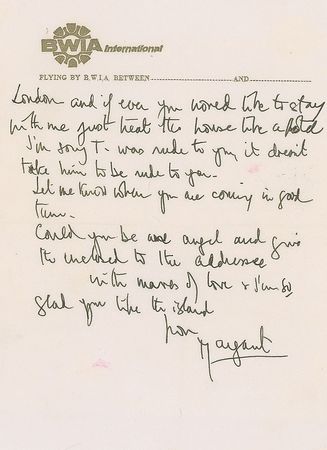 BWIA International
FLYING BY B.W.I.A. BETWEEN AND
London and if ever you would like to stay
with me just treat the house like a
I'm sorry T- was rude to you, it doesn't
take him to be rude to you-
Let me know when you are coming in good
time-
Could you be an angel and give
the enclosed to the addressee
with masses of love & I'm so
glad you like the island
from
Margaret